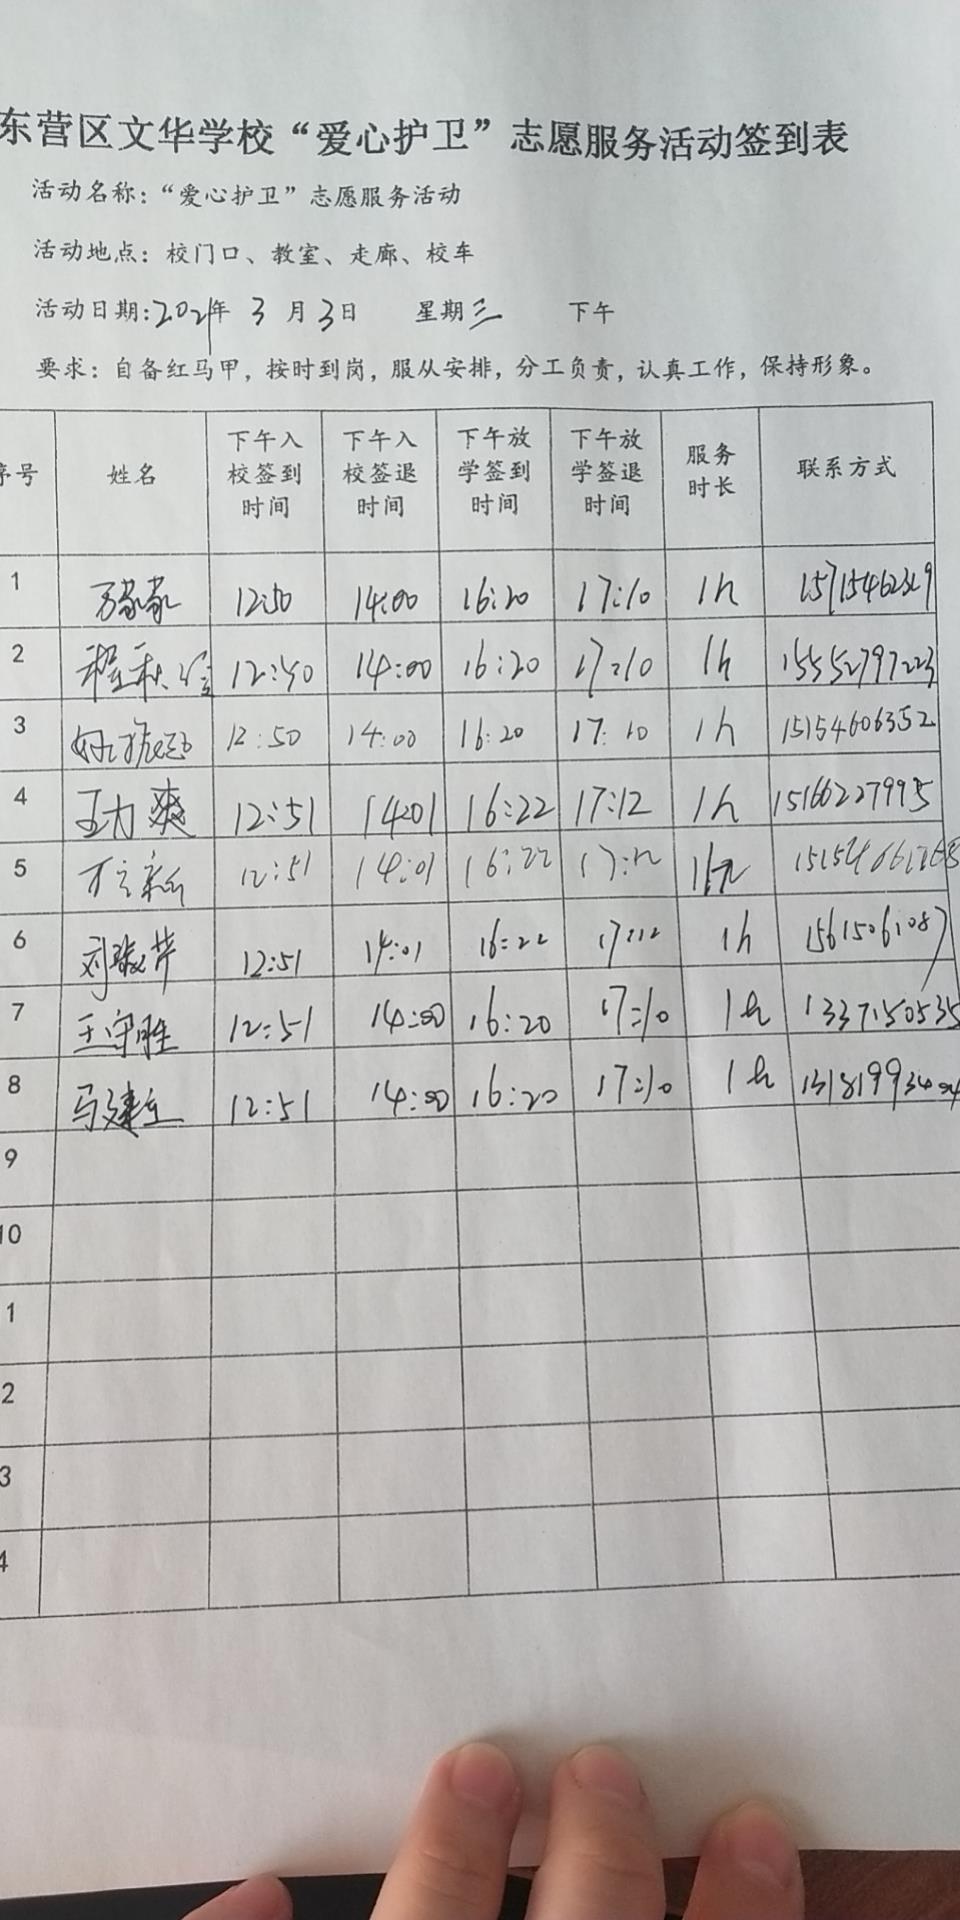 东营区文华学校“爱心护卫”志愿服务活动签到表
活动名称：“爱心护卫”志愿服务活动
活动地点：校门口、教室、走廊、校车
活动日期：2021年 3月 3日 星期三 下午
要求：自备红马甲，按时到岗，服从安排，分工负责，认真工作，保持形象。
序号 姓名 下午入校签到时间 下午入校签退时间 下午放学签到时间 下午放学签退时间 服务时长 联系方式
1 12:50 14:00 16:20 17:10 1h
2 14:00 16:20 17:10 1h 15552797223
3 12:50 14:00 16:20 17:10 1h 15154606352
4 王力爽 12:51 1401 16:22 17:12 1h 15166227995
5 12:51 14:01 16:22 17:12
6 12:51 14:01 16:22 17:12 1h 15615061087
7 王守胜 12:51 14:00 16:20 17:10 1h 1337150535
8 马建立 12:51 14:00 16:20 17:10 1h
9
10
1
2
3
4